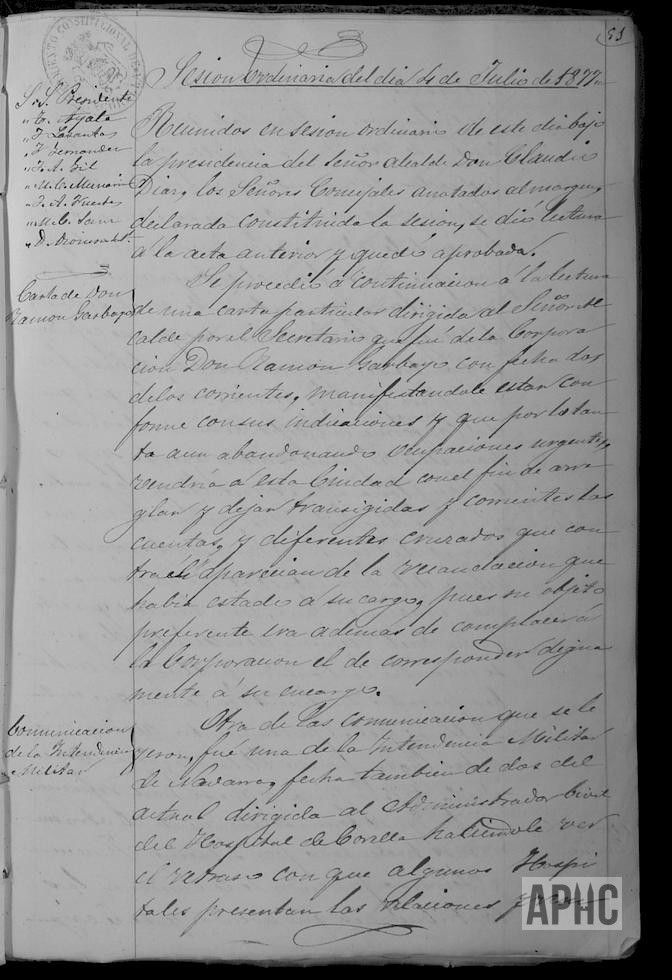 51
Sesion Ordinaria del dia 4 de Julio de 1877
S.S. Presidente
" Ayala
" F. Lasantas
" F. Fernandez
" F. A. Gil
" J. A. Fuertes
Reunidos en sesion ordinaria de este dia bajo
la presidencia del Señor Alcalde Don Claudio
Diaz, los Señores Concejales anotados al margen,
declarada constituida la sesion, se dió lectura
á la acta anterior y quedó aprobada.
Carta de Don
Ramon Garbayo
Se procedió á continuacion á la lectura
de una carta particular dirigida al Señor Al
calde por el Secretario que fué de la Corpora
cion Don Ramon Garbayo con fecha dos
de los corrientes, manifestandole estar con
forme con sus indicaciones y que por lo tan
to aun abandonando ocupaciones urgentes,
vendria á esta Ciudad con el fin de arre
glar y dejar transigidas y corrientes las
cuentas, y diferentes cruzados que con
tra él aparecian de la recaudacion que
habia estado á su cargo, pues su objeto
preferente era además de complacer á
la Corporacion el de corresponder digna
mente á su encargo.
Comunicacion
de la Intendencia
Militar
Otra de las comunicacion que se le
yeron, fué una de la Intendencia Militar
de Navarra, fecha tambien de dos del
actual dirigida al Administrador Civil
del Hospital de Corella haciendole ver
el retraso con que algunos Hospi
tales presentan las relaciones
APHC